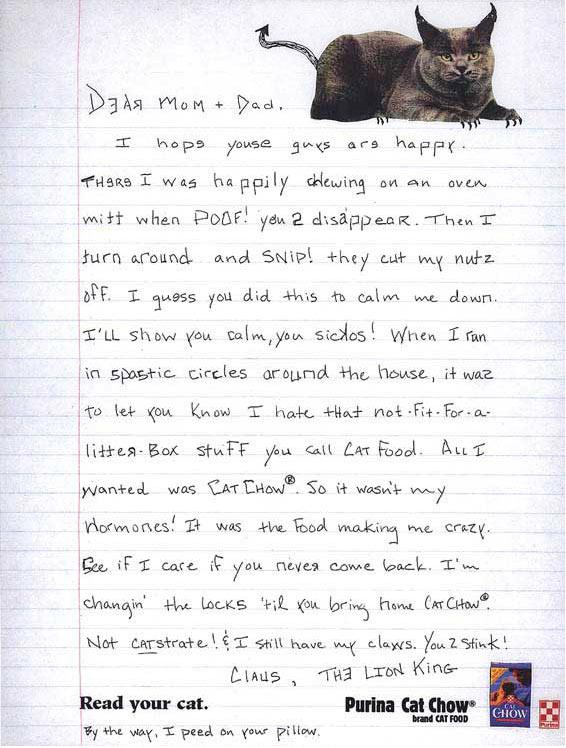 Dear Mom + Dad,
I hope youse guys are happy.
There I was happily chewing on an oven
mitt when POOF! you 2 disappear. Then I
turn around and SNiP! they cut my nutz
off. I guess you did this to calm me down.
I'LL show you calm, you sickos! When I ran
in spastic circles around the house, it waz
to let you Know I hate that not-Fit-For-a-
litter-Box stuFF you call CAT Food. ALL I
wanted was CAT CHOW®. So it wasn't my
Hormones! It was the Food making me crazy.
See iF I care if you never come back. I'm
changin' the Locks 'til you bring home CAT CHOW®.
Not CATstrate! & I still have my claws. You 2 stink!
CLAUS, THE LION KING
Read your cat.
Purina Cat Chow®
brand CAT FOOD
CAT
CHOW
Purina
By the way, I peed on your pillow.